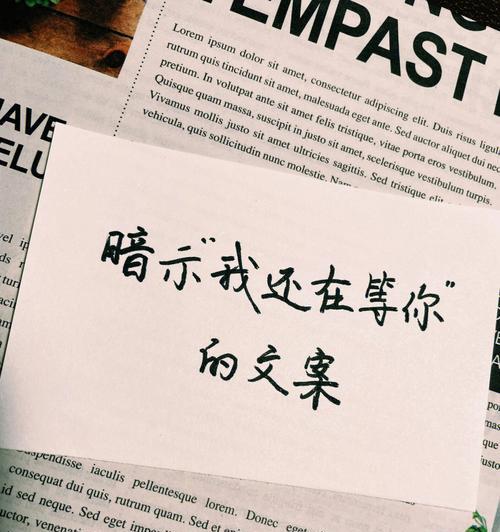 TEMPAST
Lorem ipsum dolor sit amet, consectetur adipiscing elit. Duis risus ligul
rutrum quis tincidunt sit amet, malesuada eget ante. Sed auctor aliquet dui nec
pretium. In volutpat ante sit amet felis tristique, vitae porta eros vestibulum.
Quisque quam massa, suscipit in justo sit amet, scelerisque vestibulum turpis.
Vivamus mollis justo sit amet ultricies sagittis. Sed tristique
vehicula, quis sollicitudin nunc molestie. Nam
HAVE
ELU
暗示"我还在等你"
的文案
suspendisse iaculis pellentesque lorem. Donec
consequat dui quis, rutrum quam. Sed
id sed neque. Sed eget
auctor, venenatis